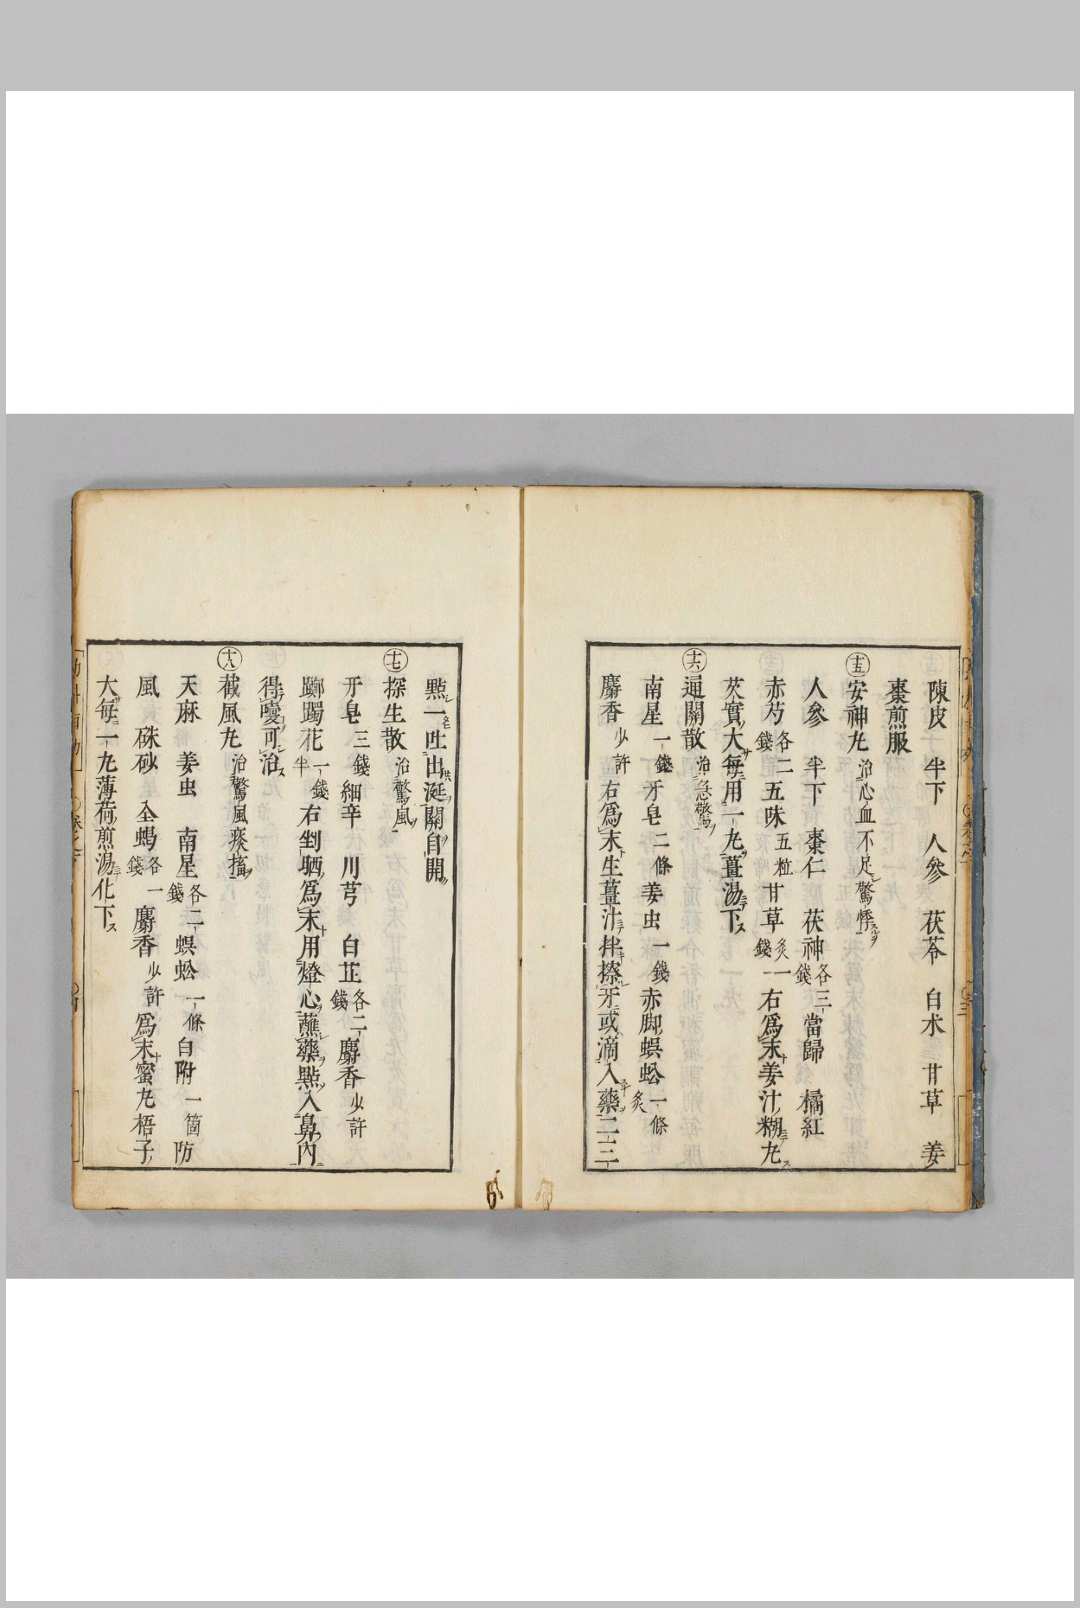 陳皮 半下 人參 茯苓 白朮 甘草 姜
棗煎服
十五 安神丸 治心血不足驚悸
人參 半下 棗仁 茯神各三錢 當歸 橘紅
赤芍各二錢 五味五粒 甘草炙一錢 右爲末姜汁糊丸
芡實大每用一丸薑湯下
十六 通關散 治急驚
南星一錢 牙皂二條 姜虫一錢 赤脚蜈蚣一條炙
麝香少許 右爲末生薑汁拌擦牙或滴入藥二三
點一吐出涎關自開
十七 探生散 治驚風
牙皂三錢 細辛 川芎 白芷各二錢 麝香少許
躑躅花一錢半 右剉晒爲末用燈心蘸藥點入鼻內
得嚏可治
十八 截風丸 治驚風痰搐
天麻 姜虫 南星各二錢 蜈蚣一條 白附一箇 防
風 硃砂 全蝎各一錢 麝香少許 爲末蜜丸梧子
大每一丸薄荷煎湯化下